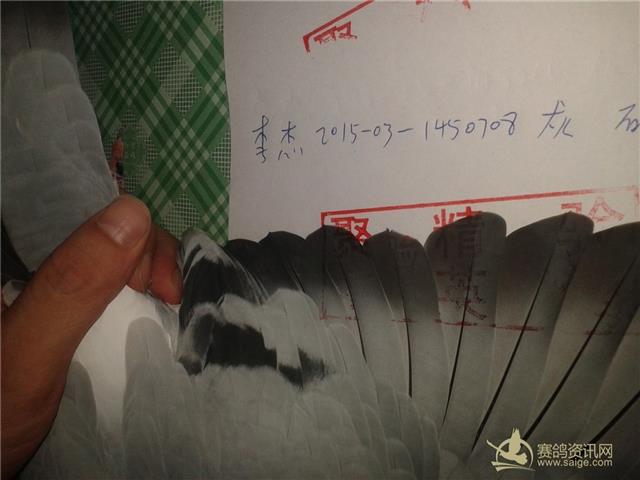 李杰 2015-03-1450708 雄 石
聚 精 英
赛鸽资讯网
www.saige.com